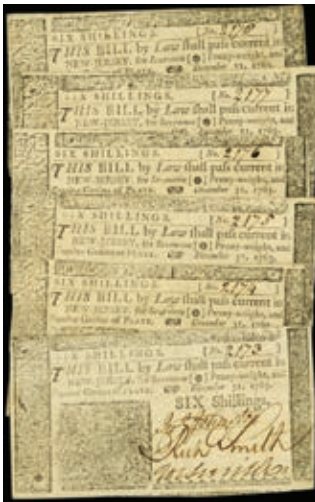 SIX SHILLINGS. [No. 2178 ]
THIS BILL by Law shall pass current in
NEW-JERSEY, for Seventeen Penny-weight, and
of PLATE. December 31, 1763.
SIX SHILLINGS. [No. 2177 ]
THIS BILL by Law shall pass current in
NEW-JERSEY, for Seventeen Penny-weight, and
December 31, 1763.
SIX SHILLINGS. [No. 2176 ]
THIS BILL by Law shall pass current in
NEW-JERSEY, for Seventeen Penny-weight, and
Grains of PLATE. December 31, 1763.
SIX SHILLINGS. [No. 2175 ]
THIS BILL by Law shall pass current in
NEW-JERSEY, for Seventeen Penny-weight, and
Grains of PLATE. December 31, 1763.
SIX SHILLINGS. [No. 2174
THIS BILL by Law shall pass current in
NEW-JERSEY, for Seventeen Penny-weight, and
Grains of PLATE. December 31, 1763.
SIX SHILLINGS. [No. 2173
THIS BILL by Law shall pass current in
NEW-JERSEY, for Seventeen Penny-weight, and
Grains of PLATE. December 31, 1763.
SIX Shillings.
Smith